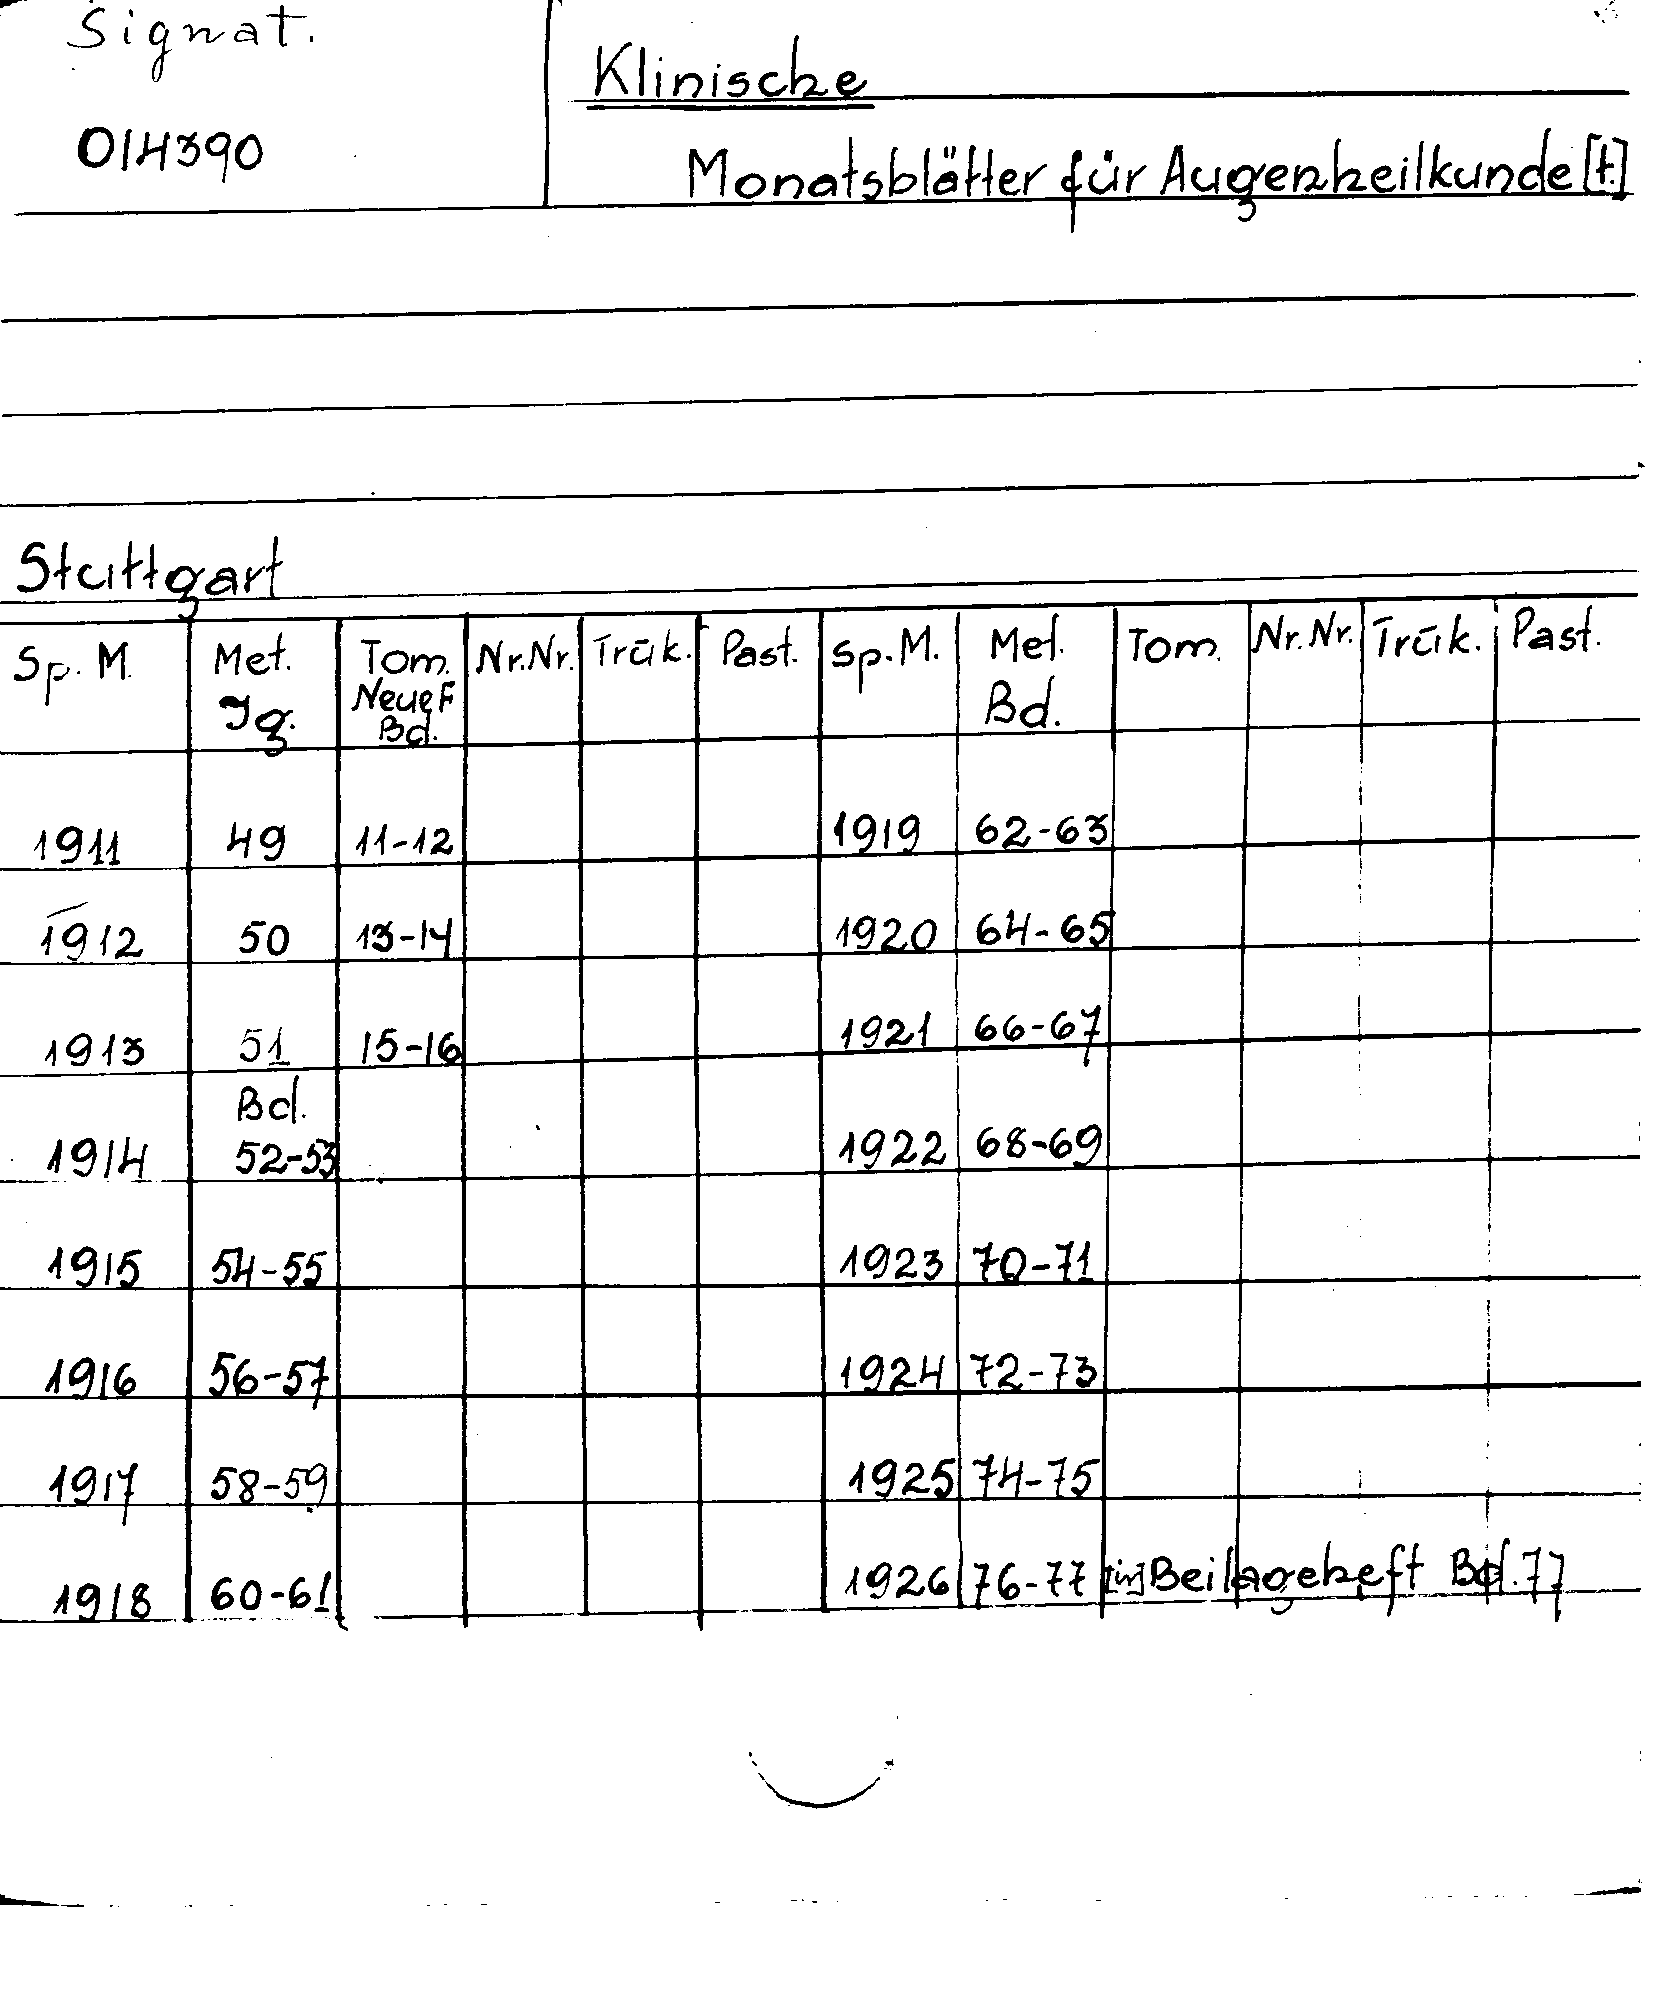 Signat.
014390
Klinische
Monatsblätter für Augenheilkunde [t.]
Stuttgart
Sp. M. Met. Tom. Nr.Nr. Trūk. Past. Sp. M. Met. Tom. Nr.Nr. Trūk. Past.
Jg. Neue F Bd. Bd.
1911 49 11-12 1919 62-63
1912 50 13-14 1920 64-65
1913 51 15-16 1921 66-67
Bd.
1914 52-53 1922 68-69
1915 54-55 1923 70-71
1916 56-57 1924 72-73
1917 58-59 1925 74-75
1918 60-61 1926 76-77 Beilageheft Bd. 77